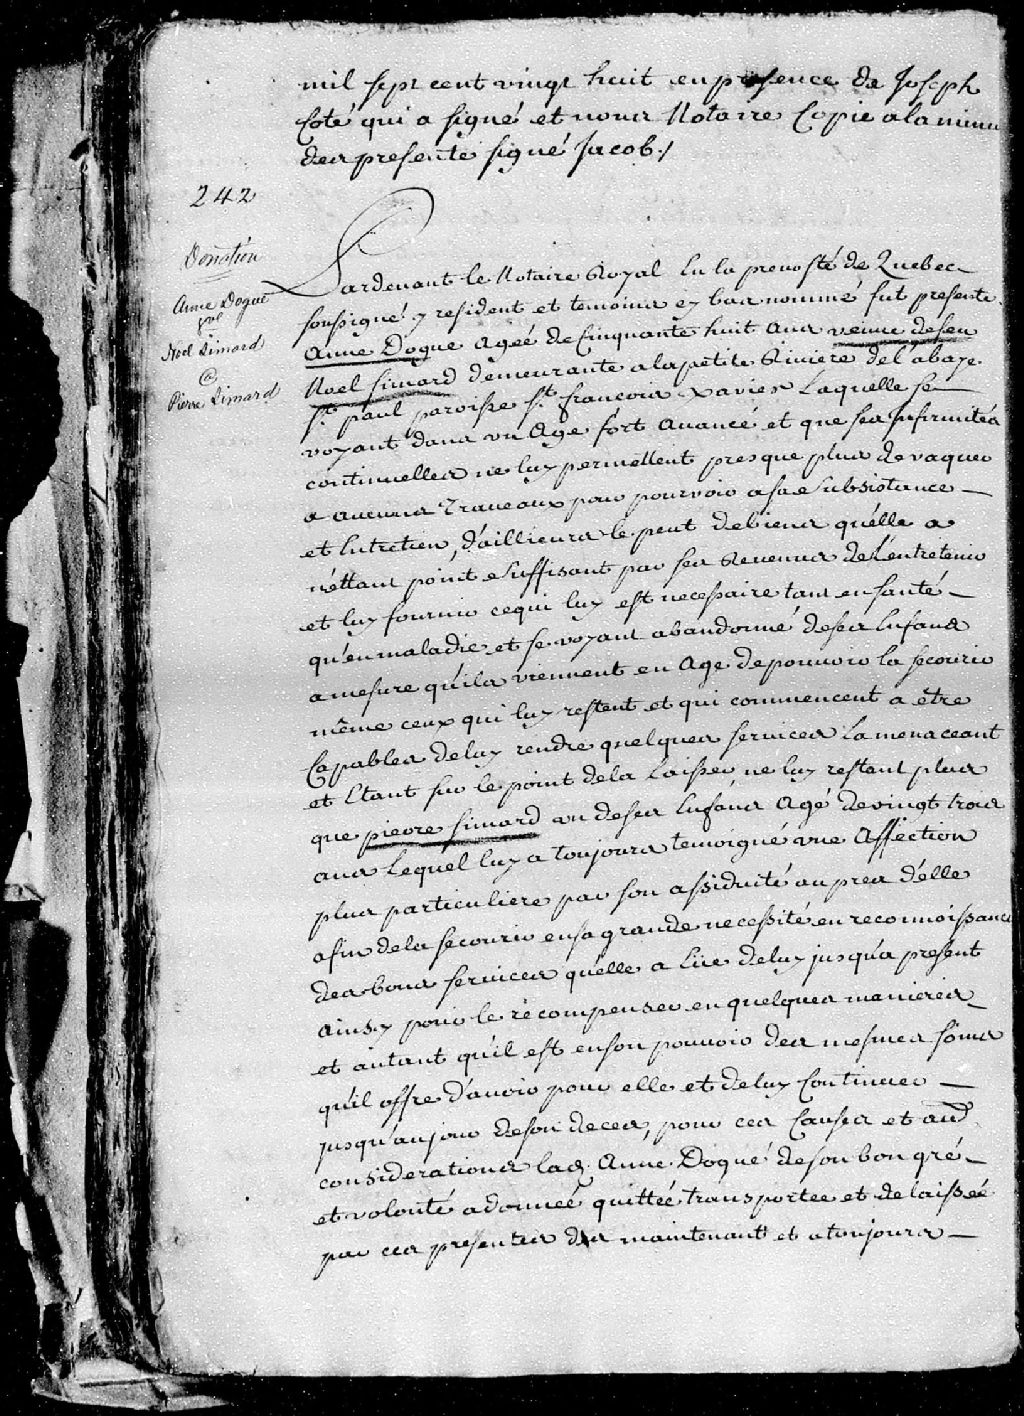 mil sept cent vingt huit en presence de Joseph
Coté qui a signé et nous Notaire Copie a la minu
des presente signé Jacob ./
242
Donation
Anne Dogué
vve
Noel Simard
@
Pierre Simard
Pardevant le Notaire Royal En la prevosté de Quebec
soussigné y resident et temoins cy bas nommé fut presente
Anne Dogué agée de Cinquante huit ans veuve defeu
Noel Simard demeurante a la petite Riviere de l'abaye
St. paul paroisse St. francois Xavier Laquelle se
voyant dans un Age fort avancé et que ses Infirmités
continuelles ne luy permettent presque plus de vaquer
a aucuns Traveaux pour pourvoir a sa Subsistance
et Entretien, d'ailleurs le peut debiens qu'elle a
n'éttant point Suffisant par ses Revenus de L'entretenir
et luy fournir ce qui luy est necessaire tant en santé
qu'en maladie et se voyant abandonné de ses Enfans
a mesure qu'ils viennent en Age de pouvoir la secourir
même ceux qui luy restent et qui commencent a être
Capables de luy rendre quelques services La menaceant
et Etant sur le point de la Laisser ne luy restant plus
que pierre Simard un de ses Enfans Agé de vingt trois
ans Lequel luy a toujours temoigné une Affection
plus particuliere par son assiduité au pres d'elle
afin de la secourir en sa grande necessité en reconnoissance
des bons services qu'elle a tiré de luy jusqu'a present
ainsy pour le récompenser en quelques manieres
et autant qu'il est en son pouvoir des mesmes soins
qu'il offre d'avoir pour elle et de luy Continuer
jusqu'au jour de son deces, pour ces Causes et aud.
considerations lad. Anne Dogué de son bon gré
et volonté a donnée quittée transportée et delaissée
par ces presentes des maintenant et a toujours